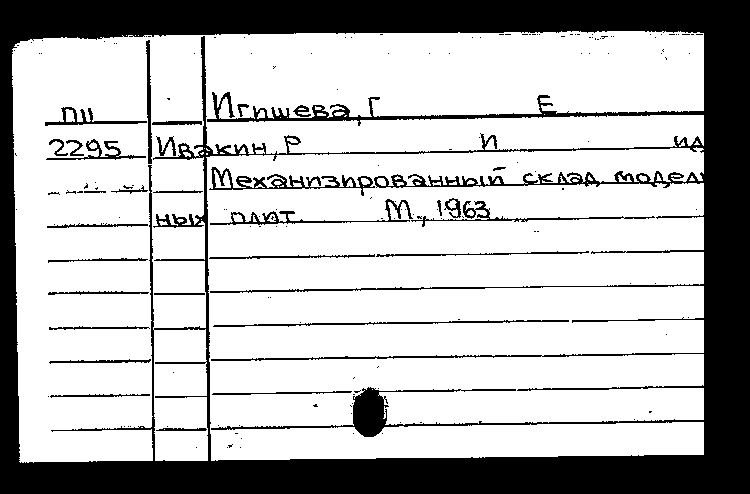 П11 Игишева, Г Е
2295 Ивакин, Р И ид
Механизированный склад модель
ных плит. М., 1963